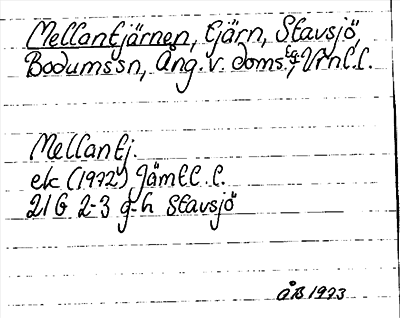 Mellantjärnen, tjärn, Stavsjö,
Bodumssn, Ång. v. doms.tg, Vrnl.l.
Mellantj.
ek (1972) Jämtl.l.
21G 2-3 g-h Stavsjö
ÅB 1973